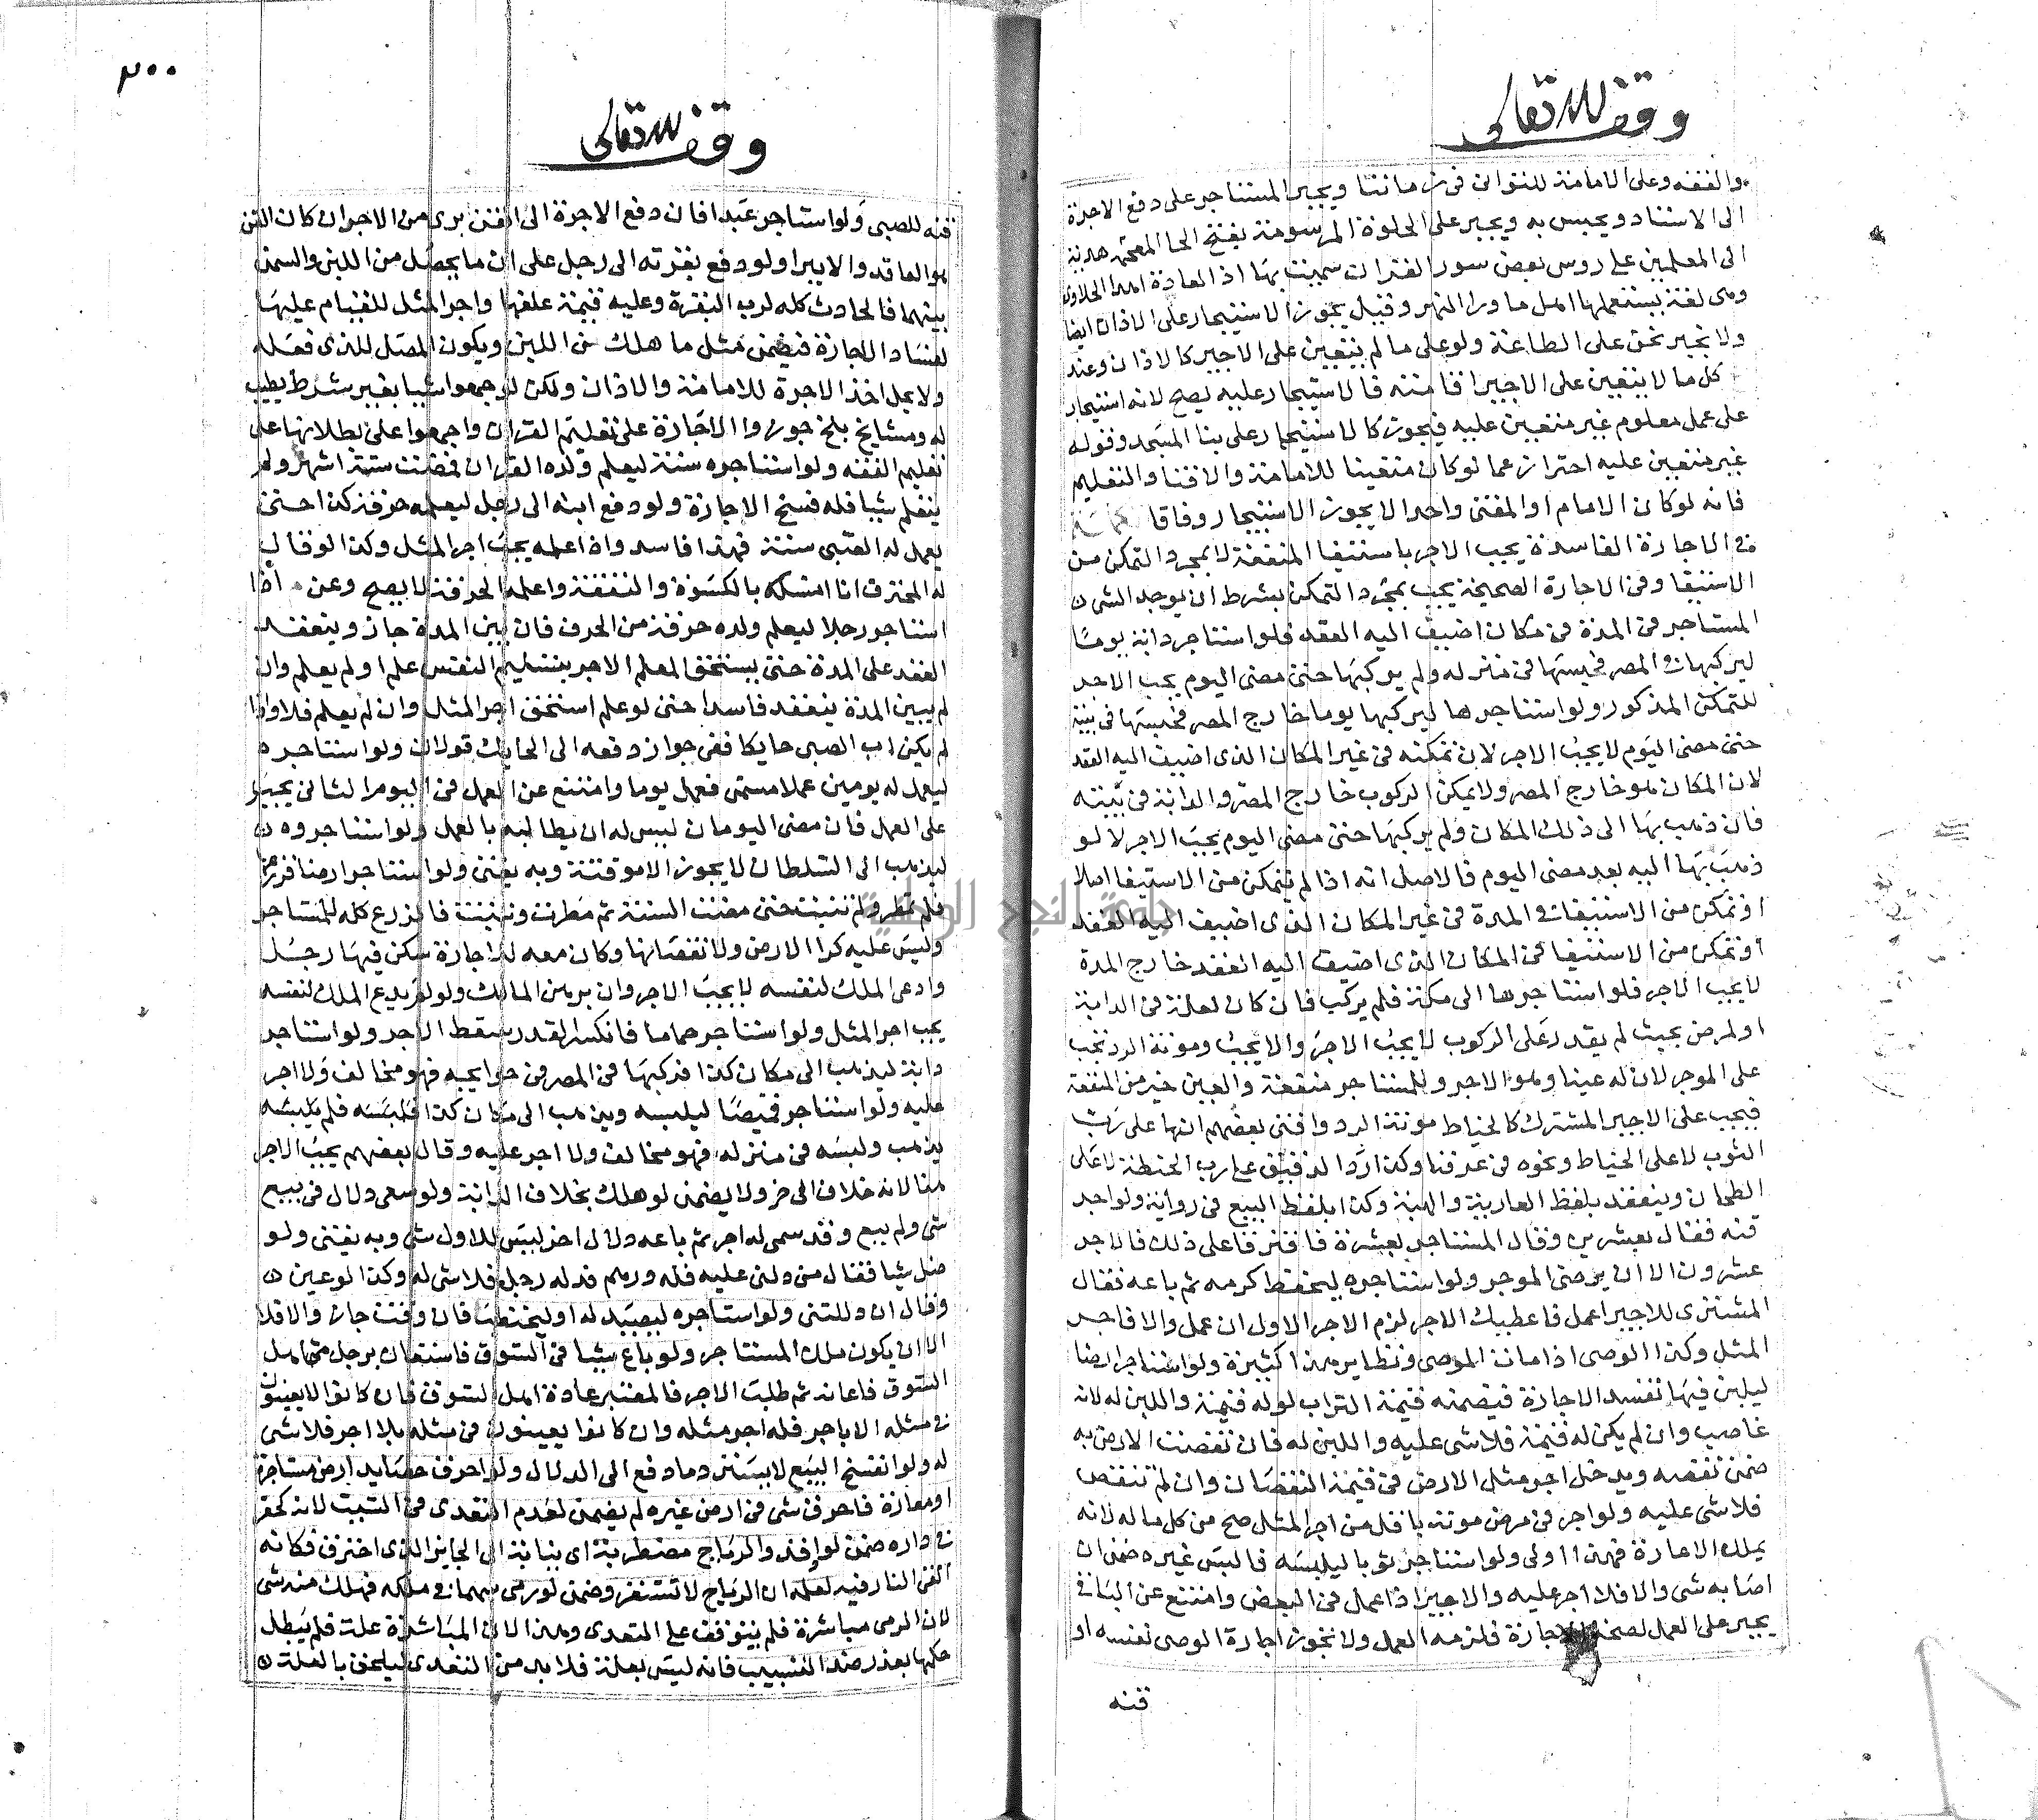 وقف لله تعالى
والفقه وعلى الامامة للتوانى فى زماننا ويجبر المستاجر على دفع الاجرة
الى الاستاد ويحبس به ويجبر على الحلوة المرسومة بفتح الحا المهملة هدية
الى المعلمين على روس بعض سور القران سميت بها اذ العادة اهدا الحلاوى
وهى لغة يستعملها اهل ما ورا النهر وقيل يجوز الاستيجار على الاذان ايضا
ولا نجير نحن على الطاعة ولو على ما لم يتعين على الاجير كالاذان وعند
كل ما لا يتعين على الاجير اقامته فالاستيجار عليه يصح لانه استيجار
على عمل معلوم غير متعين عليه فيجوز كالاستيجار على بنا المسجد وقوله
غير متعين عليه احتراز عما لو كان متعينا للامامة والافتا والتعليم
فانه لو كان الامام او المفتى واحدا لا يجوز الاستيجار وفاقا
فى الاجارة الفاسدة يجب الاجر باستيفا المنفعة لا بمجرد التمكن من
الاستيفا وفى الاجارة الصحيحة يجب بمجرد التمكن بشرط ان يوجد الشى
المستاجر فى المدة فى مكان اضيف اليه العقد فلو استاجر دابة يوما
ليركبها فى المصر فحبسها فى منزله ولم يركبها حتى مضى اليوم يجب الاجر
للتمكن المذكور ولو استاجرها ليركبها يوما خارج المصر فحبسها فى بيته
حتى مضى اليوم لا يجب الاجر لان تمكنه فى غير المكان الذى اضيف اليه العقد
لان المكان هو خارج المصر ولا يمكن الركوب خارج المصر والدابة فى بيته
فان ذهب بها الى ذلك المكان ولم يركبها حتى مضى اليوم يجب الاجر لا لو
ذهب بها اليه بعد مضى اليوم فالاصل انه اذا لم يتمكن من الاستيفا اصلا
او تمكن من الاستيفا فى المدة فى غير المكان الذى اضيف اليه العقد
او تمكن من الاستيفا فى المكان الذى اضيف اليه العقد خارج المدة
لا يجب الاجر فلو استاجرها الى مكة فلم يركب فان كان لعلة فى الدابة
او لمرض بحيث لم يقدر على الركوب لا يجب الاجر والا يجب ومونة الرد تجب
على الموجر لان له عينا وهو الاجر وللمستاجر منفعة والعين خير من المنفعة
فيجب على الاجير المشترك كالخياط مونة الرد وافتى بعضهم انها على رب
الثوب لا على الخياط ونحوه فى عرفنا وكذا رد الدقيق على رب الحنطة لا على
الطحان وينعقد بلفظ العارية والهبة وكذا بلفظ البيع فى رواية ولو اجر
قنه فقال بعشرين وقال المستاجر بعشرة فافترقا على ذلك فالاجر
عشرون الا ان يرضى الموجر ولو استاجره ليحفظ كرمه ثم باعه فقال
المشترى للاجير اعمل فاعطيك الاجر لزم الاجر الاول ان عمل والا فاجر
المثل وكذا الوصى اذا مات الموصى ونظاير هذا كثيرة ولو استاجر ارضا
ليلبن فيها تفسد الاجارة فيضمنه قيمة التراب لو له قيمة واللبن له لانه
غاصب وان لم يكن له قيمة فلا شى عليه واللبن له فان نقصت الارض به
ضمن نقصه ويدخل اجر مثل الارض فى قيمة النقصان وان لم تنقص
فلا شى عليه ولو اجر فى مرض موته باقل من اجر المثل صح من كل ماله لانه
يملك الاعارة فهذا اولى ولو استاجر ثوبا ليلبسه فالبس غيره ضمن ان
اصابه شى والا فلا اجر عليه والاجير اذا عمل فى البعض وامتنع عن الباقى
يجبر على العمل لصحة الاجارة فلزمه العمل ولا تجوز اجارة الوصى نفسه او
قنه
٣٠٠
وقف لله تعالى
قنه للصبى ولو استاجر عبدا فان دفع الاجرة الى القن برى من الاجر ان كان القن
هو العاقد والا يبرا ولو دفع بقرته الى رجل على ان ما يحصل من اللبن والسمن
بينهما فالحادث كله لرب البقرة وعليه قيمة علفها واجر المثل للقيام عليها
لفساد الاجارة فيضمن مثل ما هلك من اللبن ويكون المصل للذى فعله
ولا يحل اخذ الاجرة للامامة والاذان ولكن لو جمعوا شيا بغير شرط يطيب
له ومشايخ بلخ جوزوا الاجارة على تعليم القران واجمعوا على بطلانها على
تعليم الفقه ولو استاجره سنة ليعلم ولده القران فمضت ستة اشهر ولم
يتعلم شيا فله فسخ الاجارة ولو دفع ابنه الى رجل ليعلمه حرفة كذا حتى
يعمل له الصبى سنة فهذا فاسد واذا علمه يجب اجر المثل وكذا لو قال
له المحترف انا امسكه بالكسوة والنفقة واعلمه الحرفة لا يصح وعن اذا
استاجر رجلا ليعلم ولده حرفة من الحرف فان بين المدة جاز وينعقد
العقد على المدة حتى يستحق المعلم الاجر بتسليم النفس علم او لم يعلم وان
لم يبين المدة ينعقد فاسدا حتى لو علم استحق اجر المثل وان لم يعلم فلا واذا
لم يكن اب الصبى حايكا ففى جواز دفعه الى الحايك قولان ولو استاجره
ليعمل له يومين عملا مسمى فعمل يوما وامتنع عن العمل فى اليوم الثانى يجبر
على العمل فان مضى اليومان ليس له ان يطالبه بالعمل ولو استاجروه
ليذهب الى السلطان لا يجوز الا موقتة وبه يفتى ولو استاجر ارضا فزرعها
فلم تمطر ولم تنبت حتى مضت السنة ثم مطرت ونبتت فالزرع كله للمستاجر
وليس عليه كرا الارض ولا نقصانها وكان معه لد اجارة سكن فيها رجل
وادعى الملك لنفسه لا يجب الاجر وان برهن المالك ولو لم يدع الملك لنفسه
يجب اجر المثل ولو استاجر حماما فانكسر القدر سقط الاجر ولو استاجر
دابة ليذهب الى مكان كذا فركبها فى المصر فى حوايجه فهو مخالف ولا اجر
عليه ولو استاجر قميصا ليلبسه ويذهب الى مكان كذا فلبسه فلم يلبسه
يذهب ولبسه فى منزله فهو مخالف ولا اجر عليه وقال بعضهم يجب الاجر
هنا لانه خلاف الى خير ولا يضمن لو هلك بخلاف الدابة ولو سعى دلال فى بيع
شى ولم يبع وقد سمى له اجر ثم باعه دلال اخر ليس للاول شى وبه يفتى ولو
ضل شيا فقال من دلنى عليه فله درهم فدله رجل فلا شى له وكذا لو عين
وقال ان دللتنى ولو استاجره ليصيد له او ليحتطب فان وقت جاز والا فلا
الا ان يكون ملك المستاجر ولو باع شيا فى السوق فاستعان برجل من اهل
السوق فاعانه ثم طلب الاجر فالمعتبر عادة اهل السوق فان كانوا لا يعينون
فى مثله الا باجر فله اجر مثله وان كانوا يعينون فى مثله بلا اجر فلا شى
له ولو انفسخ البيع لا يسترد ما دفع الى الدلال ولو احرق حصايد ارض مستاجرة
او معارة فاحرق شى فى ارض غيره لم يضمن لعدم التعدى فى التسبب لانه كحفر
فى داره ضمن لو اوقد والرياح مضطربة اى بنا بة الى الجاير الذى احترق فكانه
القى النار فيه لعلمه ان الرياح لا تستقر وضمن لو رمى سهما فى ملكه فهلك منه شى
لان الرمى مباشرة فلم يتوقف على التعدى وهذا لان المباشرة علة فلم يبطل
حكمها بعذر ضد التسبيب فانه ليس بعلة فلا بد من التعدى ليلحق بالعلة
جامعة النجاح الوطنية